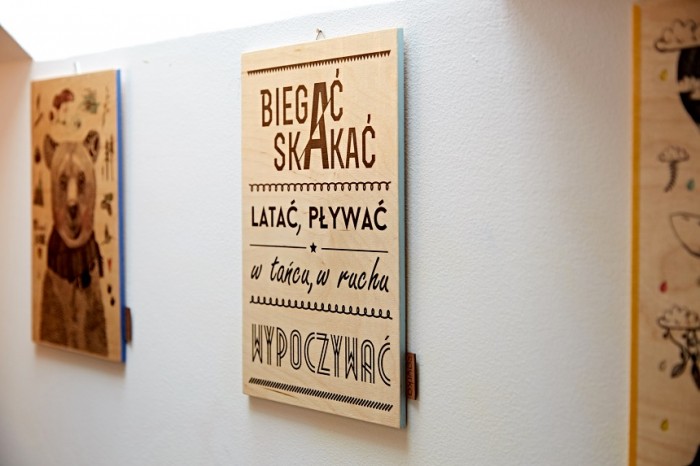 BIEGAĆ
SKAKAĆ
LATAĆ, PŁYWAĆ
w tańcu, w ruchu
WYPOCZYWAĆ